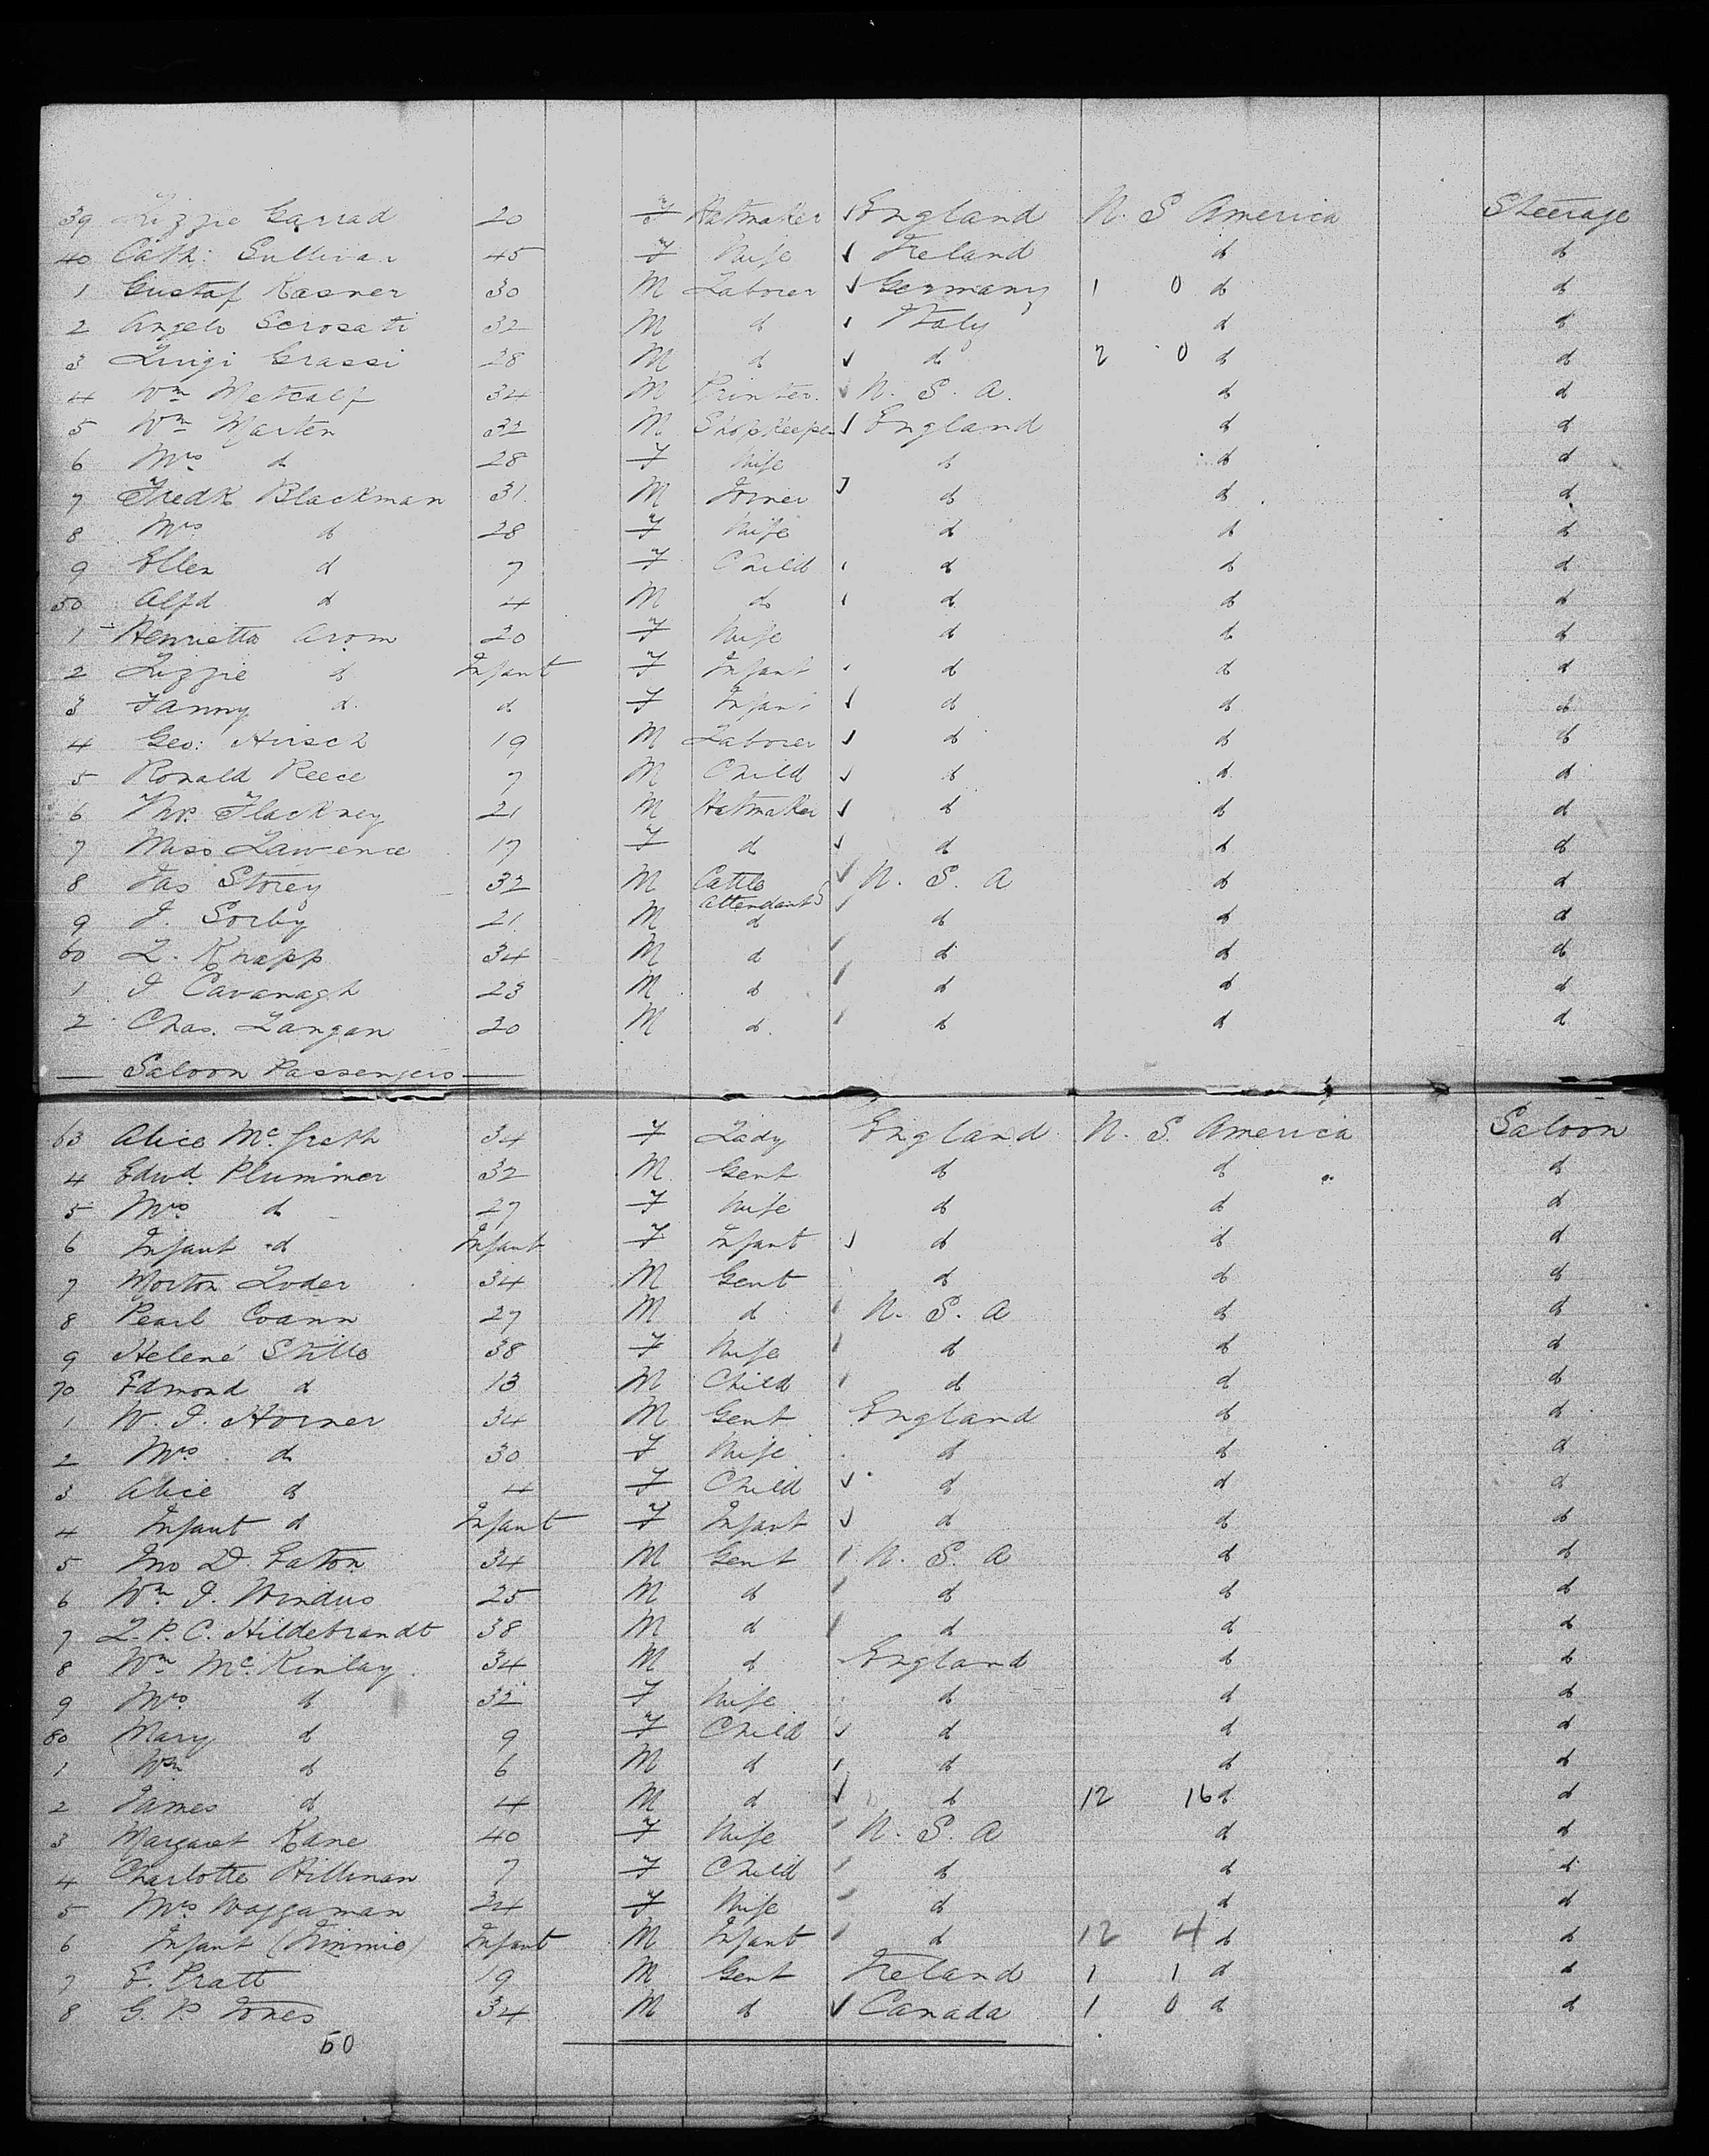 39 Lizzie Garrad 20 F Hatmaker √ England U. S America Steerage
40 Cath: Sullivan 45 F Wife √ Ireland d d
1 Gustaf Kasner 30 M Laborer √ Germany 1 0 d d
2 Angelo Scrosati 32 M d √ Italy d d
3 Luigi Grassi 28 M d √ d 2 0 d d
4 Wm Metcalf 34 M Printer. √ U. S. A. d d
5 Wm Marten 32 M Shopkeeper √ England d d
6 Mrs d 28 F Wife d d d
7 Fredk Blackman 31 M Joiner √ d d d
8 Mrs d 28 F Wife d d d
9 Ellen d 7 F Child d d d
50 Alfd d 4 M d d d d
1 Henrietta Arom 20 F Wife d d d
2 Lizzie d Infant F Infant d d d
3 Fanny d. d F Infant √ d d d
4 Geo: Hirsch 19 M Laborer √ d d d
5 Ronald Reece 7 M Child √ d d d
6 Thos. Flackney 21 M Hatmaker √ d d d
7 Miss Lawrence 17 F d √ d d d
8 Jas Storey 32 M Cattle √ U. S. A d d
Attendants
9 J. Sorby 21 M d d d d
60 L. Knapp 34 M d d d d
1 J Cavanagh 23 M d d d d
2 Chas. Langan 20 M d. d d d
— Saloon Passengers —
63 Alice McGrath 34 F Lady England U. S. America Saloon
4 Edwd. Plummer 32 M Gent d d d
5 Mrs d 27 F Wife d d d
6 Infant d Infant F Infant √ d d d
7 Morton Loder 34 M Gent d d d
8 Pearl Coann 27 M d U. S. A d d
9 Helené Stille 38 F Wife d d d
70 Edmond d 13 M Child d d d
1 W. J. Horner 34 M Gent England d d
2 Mrs d 30 F Wife d d d
3 Alice d 4 F Child √ d d d
4 Infant d Infant F Infant √ d d d
5 Jno D. Eaton 34 M Gent U. S. A d d
6 Wm J. Windus 25 M d d d d
7 L. P. C. Hildebrandt 38 M d d d d
8 Wm McKinlay 34 M d England d d
9 Mrs d 32 F Wife d d d
80 Mary d 9 F Child √ d d d
1 Wm d 6 M d d d d
2 James d 4 M d √ d 12 16 d d
3 Margaret Kane 40 F Wife U. S. A d d
4 Charlotte Hillman 7 F Child d d d
5 Mrs Waggaman 24 F Wife d d d
6 Infant (Jimmie) Infant M Infant d 12 4 d d
7 E. Pratt 19 M Gent Ireland 1 1 d d
8 G. P. Jones 34 M d √ Canada 1 0 d d
50